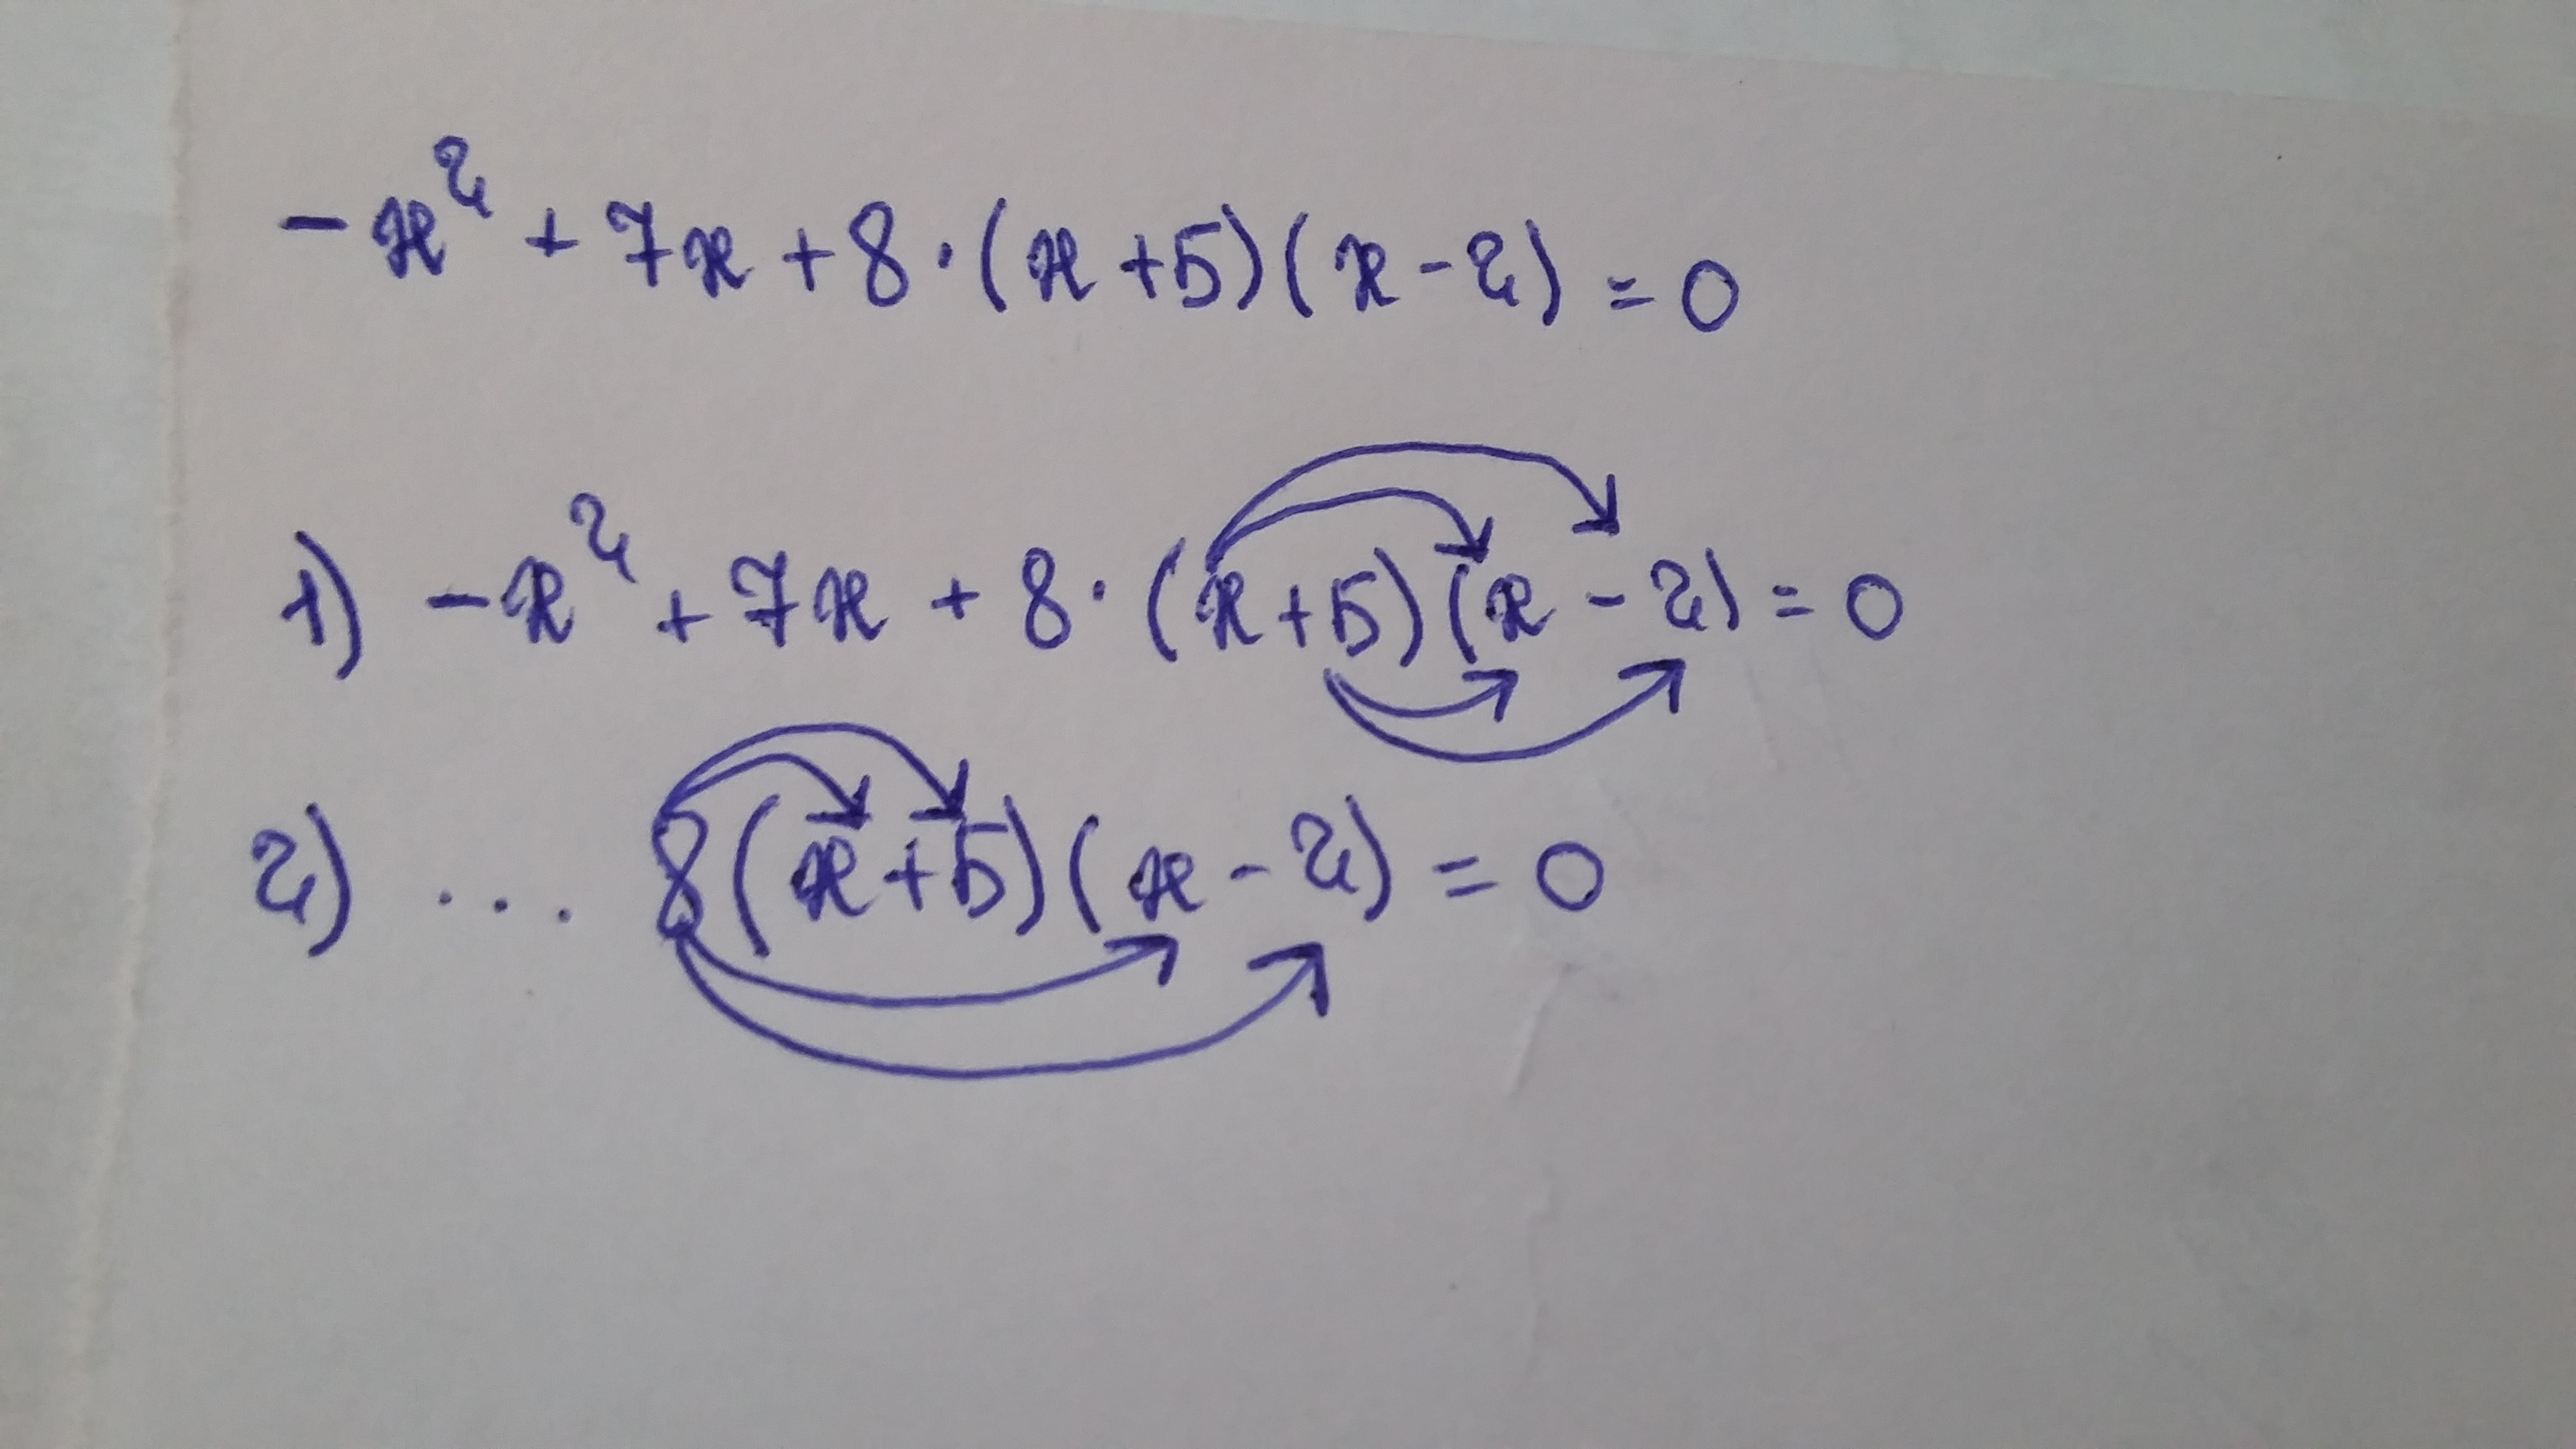 -x² + 7x + 8 · (x + 5)(x - 2) = 0
1) -x² + 7x + 8 · (x + 5)(x - 2) = 0
2) ... 8(x + 5)(x - 2) = 0